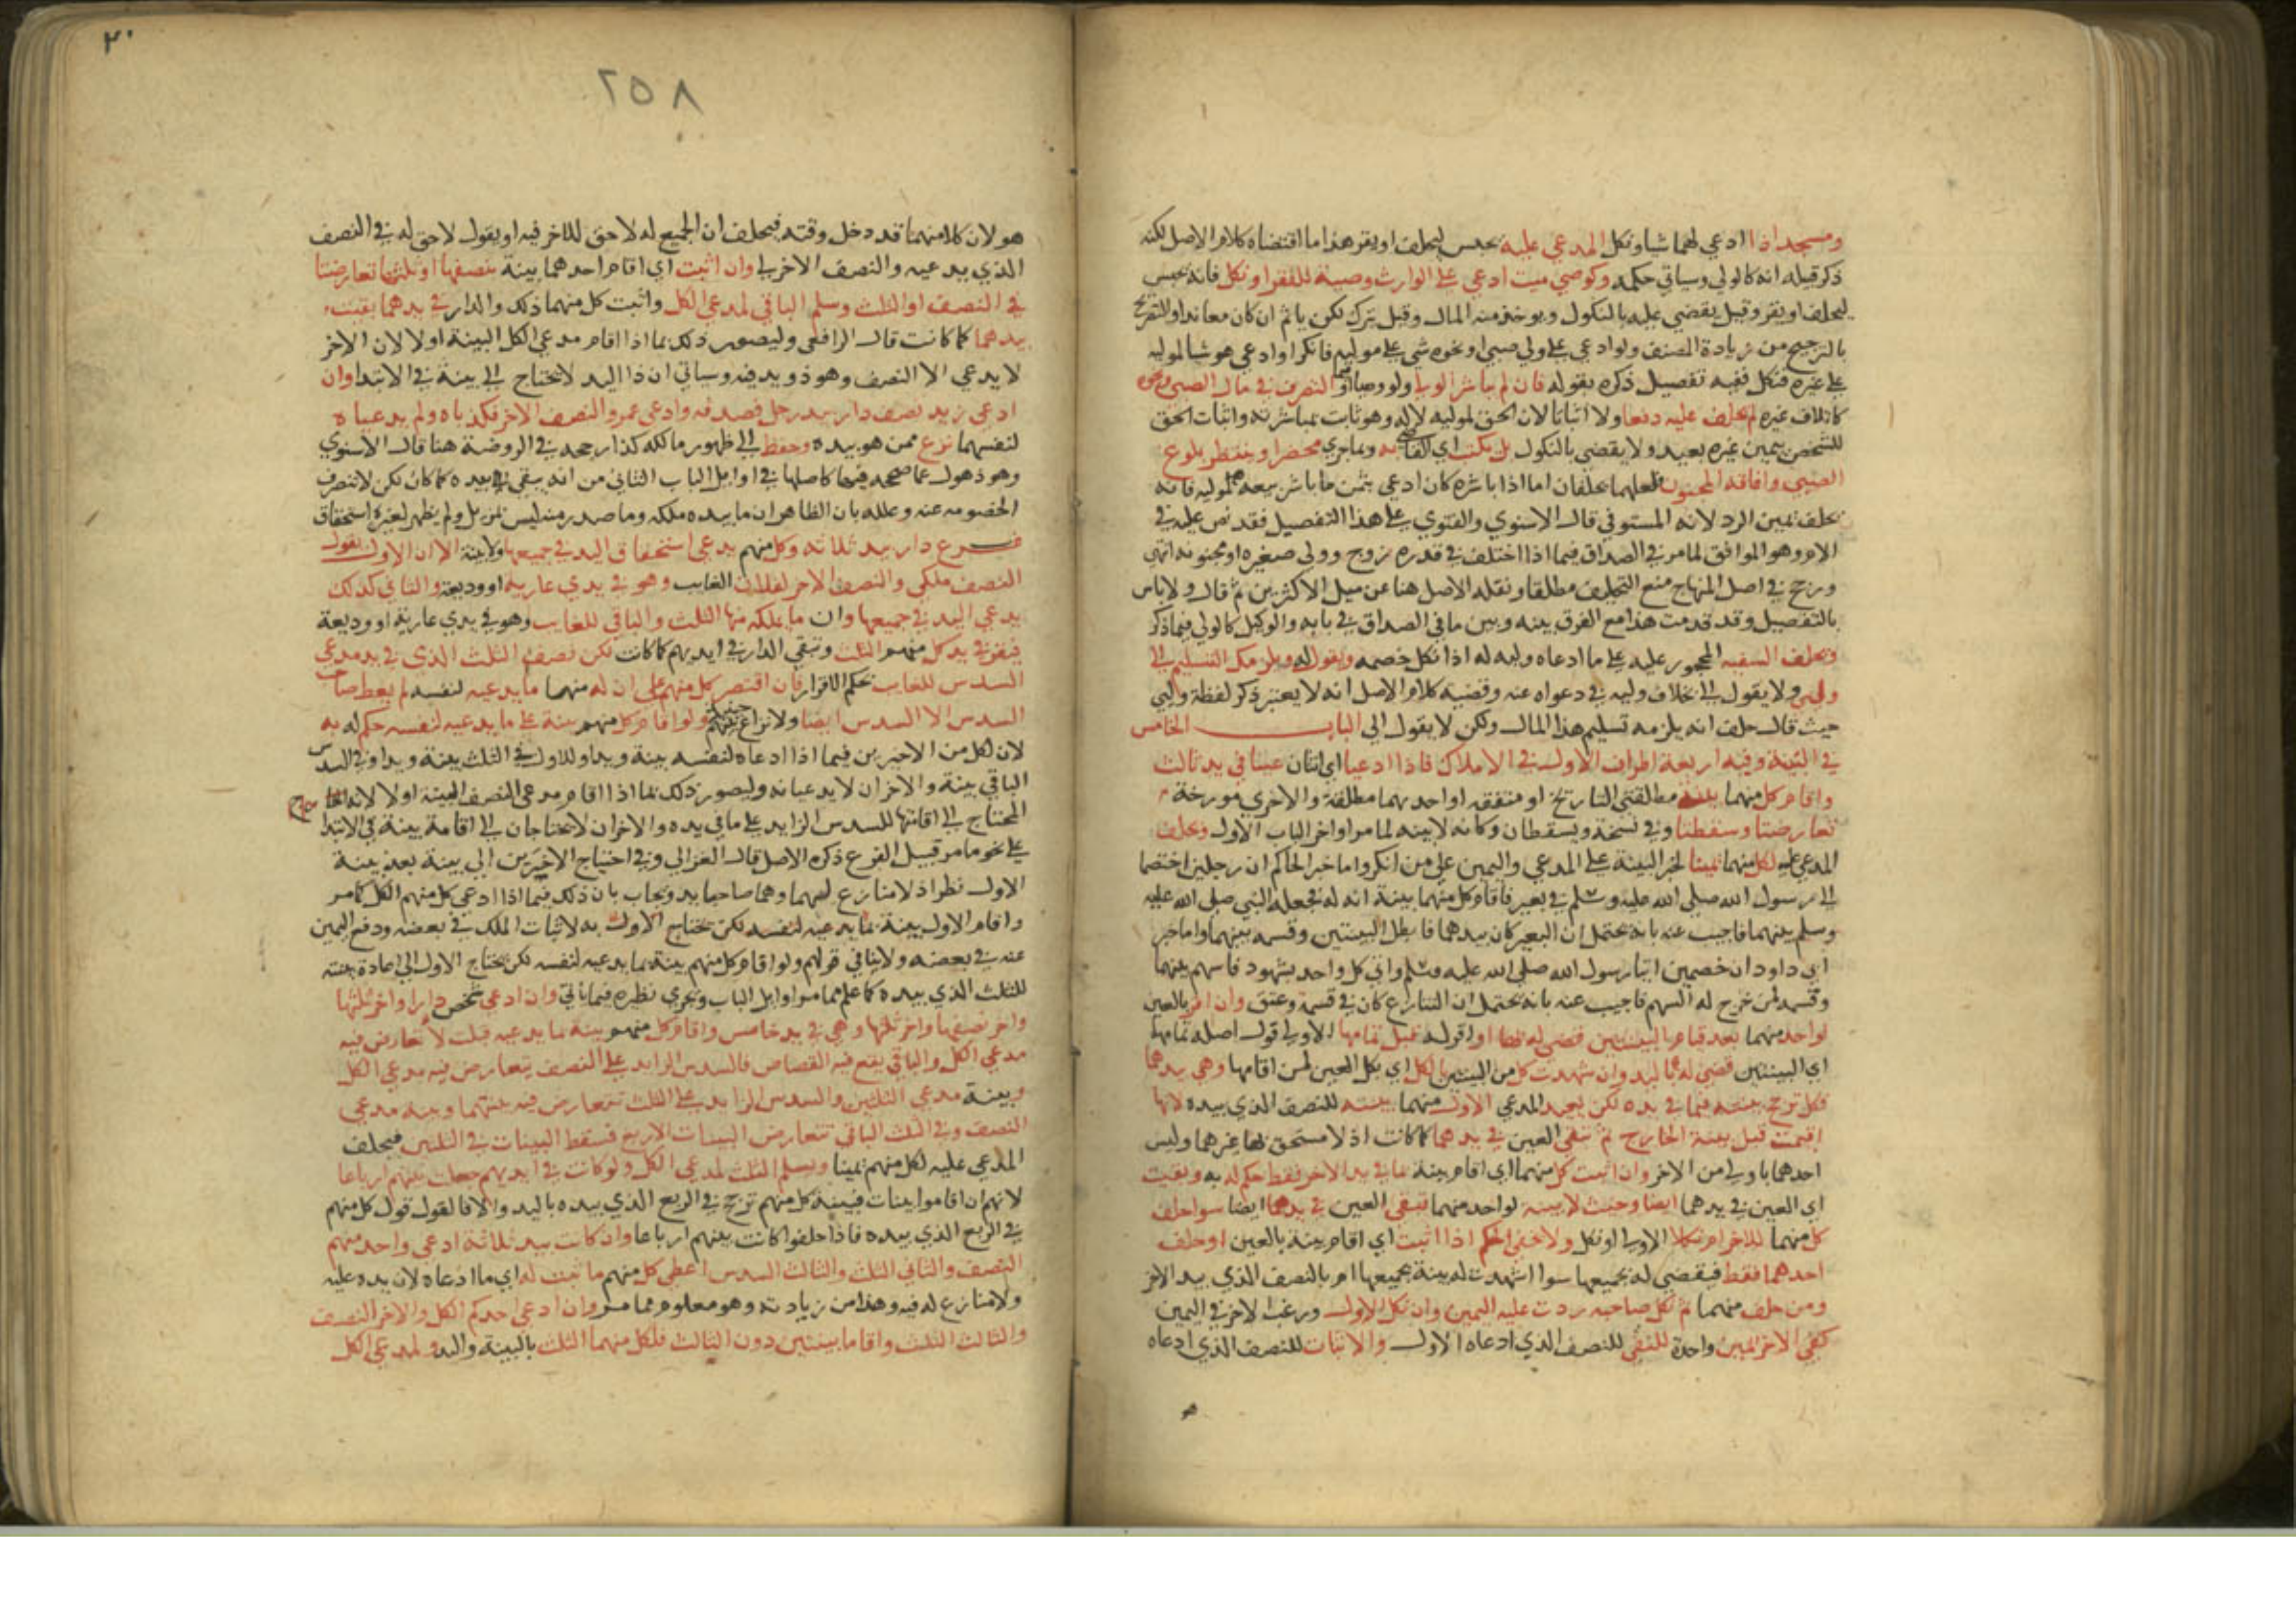 ومسجد اذا ادعي لهما شيا ونكل المدعي عليه يحبس ليحلف او يقر هذا ما اقتضاه كلام الاصل لكنه
ذكر قبله انه كالولي وسياتي حكمه وكوصي ميت ادعي علي الوارث وصية للفقرا ونكل فانه يحبس
ليحلف او يقر وقيل يقضي عليه بالنكول ويوخذ منه المال وقيل يترك لكن ياثم ان كان معاندا والتصريح
بالترجيح من زيادة المصنف ولو ادعي علي ولي صبي او نحوه شي علي موليه فانكر او ادعي هو شيا لموليه
علي غيره فنكل ففيه تفصيل ذكره بقوله فان لم يباشر الولي ولو وصيا او قيما التصرف في مال الصبي ونحوه
كاتلاف غيره لم يحلف عليه دفعا ولا اثباتا لان الحق لموليه لا له وهو ثابت بمباشرته واثبات الحق
للشخص بيمين غيره بعيد ولا يقضي بالنكول بل يكتب اي القاضي به وبما جري محضرا وينتظر بلوغ
الصبي وافاقة المجنون فلعلهما يحلفان اما اذا باشره كان ادعي بثمن ما باشر بيعه لموليه فانه
يحلف يمين الرد لانه المستوفي قال الاسنوي والفتوي علي هذا التفصيل فقد نص عليه في
الام وهو الموافق لما مر في الصداق فيما اذا اختلف في قدره زوج وولي صغيرة او مجنونة انتهي
ورجح في اصل المنهاج منع التحليف مطلقا ونقله الاصل هنا عن ميل الاكثرين ثم قال ولا باس
بالتفصيل وقد قدمت هذا مع الفرق بينه وبين ما في الصداق في بابه والوكيل كالولي فيما ذكر
ويحلف السفيه المحجور عليه علي ما ادعاه وليه له اذا نكل خصمه ويقول له ويلزمك التسليم الي
وليي ولا يقول الي بخلاف وليه في دعواه عنه وقضية كلام الاصل انه لا يعتبر ذكر لفظة وليي
حيث قال حلف انه يلزمه تسليم هذا المال ولكن لا يقول الي الباب الخامس
في البينة وفيه اربعة اطراف الاول في الاملاك فاذا ادعيا اي اثنان عينا في يد ثالث
واقام كل منهما بينة مطلقتي التاريخ او متفقه او احديهما مطلقة والاخري مورخة
تعارضتا وسقطتا وفي نسخة ويسقطان وكانه لا بينه لما مر اواخر الباب الاول ويحلف
المدعي عليه لكل منهما يمينا لخبر البينة علي المدعي واليمين علي من انكر واما خبر الحاكم ان رجلين اختصما
الي رسول الله صلي الله عليه وسلم في بعير فاقام كل منهما بينة انه له فجعله النبي صلي الله عليه
وسلم بينهما فاجيب عنه بانه يحتمل ان البعير كان بيدهما فابطل البينتين وقسمه بينهما واما خبر
ابي داود ان خصمين اتيا رسول الله صلي الله عليه وسلم واتي كل واحد بشهود فاسهم بينهما
وقسمه لمن خرج له السهم فاجيب عنه بانه يحتمل ان التنازع كان في قسمة وعتق وان اقر بالعين
لواحد منهما بعد قيام البينتين قضي له بها او اقر له قبل تمامها الاولي قول اصله تمامهما
اي البينتين قضي له بما ليد وان شهدت كل من البينتين بالكل اي بكل العين لمن اقامها وهي بيدهما
فكل ترجح بينته فيما في يده لكن يعيد المدعي الاول منهما بينته للنصف الذي بيده لانها
اقيمت قبل بينة الخارج ثم تبقي العين في يدهما كما كانت اذ لا مستحق لها غيرهما وليس
احدهما باولي من الاخر وان اثبت كل منهما اي اقام بينة بما في يد الاخر فقط حكم له به وبقيت
اي العين في يدهما ايضا وحيث لا بينة لواحد منهما تبقي العين في يدهما ايضا سوا حلف
كل منهما للاخر ام نكلا الاولي او نكل ولا خفي الحكم اذا اثبت اي اقام بينة بالعين او حلف
احدهما فقط فيقضي له بجميعها سوا اشهدت له بينة بجميعها ام بالنصف الذي بيد الاخر
ومن حلف منهما ثم نكل صاحبه ردت عليه اليمين وان نكل الاول ورغب الاخر في اليمين
كفي الاخر يمين واحدة للنفي للنصف الذي ادعاه الاول والاثبات للنصف الذي ادعاه
٢٥٨
هو لان كلا منهما قد دخل وقته فيحلف ان الجميع له لا حق للاخر فيه او يقول لا حق له في النصف
الذي يدعيه والنصف الاخر لي وان اثبت اي اقام احدهما بينة بنصفها او ثلثها تعارضتا
في النصف او الثلث وسلم الباقي لمدعي الكل واثبت كل منهما ذلك والدار في يدهما بقيت
بيدهما كما كانت قال الرافعي وليصور ذلك بما اذا اقام مدعي الكل البينة اولا لان الاخر
لا يدعي الا النصف وهو ذو يد فيه وسياتي ان ذا اليد لا يحتاج الي بينة في الابتدا وان
ادعي زيد نصف دار بيد رجل فصدقه وادعي عمرو النصف الاخر فكذباه ولم يدعياه
لنفسهما نزع ممن هو بيده وحفظ الي ظهور مالكه كذا رجحه في الروضة هنا قال الاسنوي
وهو ذهول عما صححه فيها كاصلها في اوايل الباب الثاني من انه يبقي في يده كما كان لكن لا تنصرف
الخصومه عنه وعلله بان الظاهر ان ما بيده ملكه وما صدر منه ليس بمزيل ولم يظهر لغيره استحقاق
فرع دار بيد ثلاثة وكل منهم يدعي استحقاق اليد في جميعها ولا بينة الا ان الاول يقول
النصف ملكي والنصف الاخر لفلان الغايب وهو في يدي عارية او وديعة والثاني كذلك
يدعي اليد في جميعها وان ما يملكه منها الثلث والباقي للغايب وهو في يدي عارية او وديعة
فيقر في يد كل منهم الثلث وتبقي الدار في ايديهم كما كانت لكن نصف الثلث الذي في يد مدعي
السدس للغايب بحكم الاقرار فان اقتصر كل منهم علي ان له منها ما يدعيه لنفسه لم يعط صاحب
السدس الا السدس ايضا ولا نزاع حينيذ ولو اقام كل منهم بينة علي ما يدعيه لنفسه حكم له به
لان لكل من الاخيرين فيما اذا ادعاه لنفسه بينة ويدا وللاول في الثلث بينة ويدا وفي السدس
الباقي بينة والاخران لا يدعيانه وليصور ذلك بما اذا اقام مدعي النصف البينة اولا لانه
المحتاج الي اقامتها للسدس الزايد علي ما في يده والاخران لا يحتاجان الي اقامة بينة في الابتدا
علي نحو ما مر قبيل الفرع ذكره الاصل قال الغزالي وفي احتياج الاخيرين الي بينة بعد بينة
الاول نظر اذ لا منازع لهما وهما صاحبا يد ويجاب بان ذلك فيما اذا ادعي كل منهم الكل كما مر
واقام الاول بينة بما يدعيه لنفسه لكن يحتاج الاول به لاثبات الملك في بعضه ودفع اليمين
عنه في بعضه ولا ينافي قولهم ولو اقام كل منهم بينة بما يدعيه لنفسه لكن يحتاج الاول الي اعادة بينته
للثلث الذي بيده كما علم مما مر اوايل الباب ويجري نظيره فيما ياتي وان ادعي شخص دارا واخر ثلثيها
واخر نصفها واخر ثلثها وهي في يد خامس واقام كل منهم بينة بما يدعيه قبلت لا تعارض فيه
مدعي الكل والباقي يقع فيه القصاص فالسدس الزايد علي النصف يتعارض فيه مدعي الكل
وبينة مدعي الثلثين والسدس الزايد علي الثلث تتعارض فيه بينتهما وبينة مدعي
النصف وفي الثلث الباقي تتعارض البينات الاربع فتسقط البينات في الثلثين فيحلف
المدعي عليه لكل منهم يمينا ويسلم الثلث لمدعي الكل ولو كانت في ايديهم جعلت بينهم ارباعا
لانهم ان اقاموا بينات فبينة كل منهم ترجح في الربع الذي بيده باليد والا فالقول قول كل منهم
في الربع الذي بيده فاذا حلفوا كانت بينهم ارباعا وان كانت بيد ثلاثة ادعي واحد منهم
النصف والثاني الثلث والثالث السدس اعطي كل منهم ما ثبت له اي ما ادعاه لان يده عليه
ولا منازع له فيه وهذا من زيادته وهو معلوم مما مر وان ادعي احدكم الكل والاخر النصف
والثالث الثلث واقاما بينتين دون الثالث فلكل منهما الثلث بالبينة واليد ولمدعي الكل